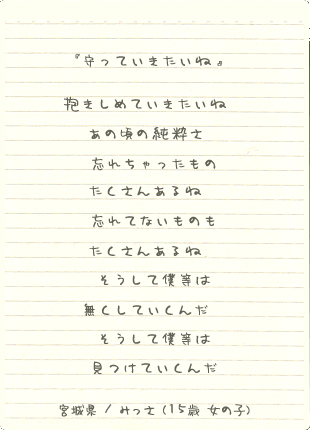 『守っていきたいね』
抱きしめていきたいね
あの頃の純粋さ
忘れちゃったもの
たくさんあるね
忘れてないものも
たくさんあるね
そうして僕等は
無くしていくんだ
そうして僕等は
見つけていくんだ
宮城県 / みっさ (15歳 女の子)